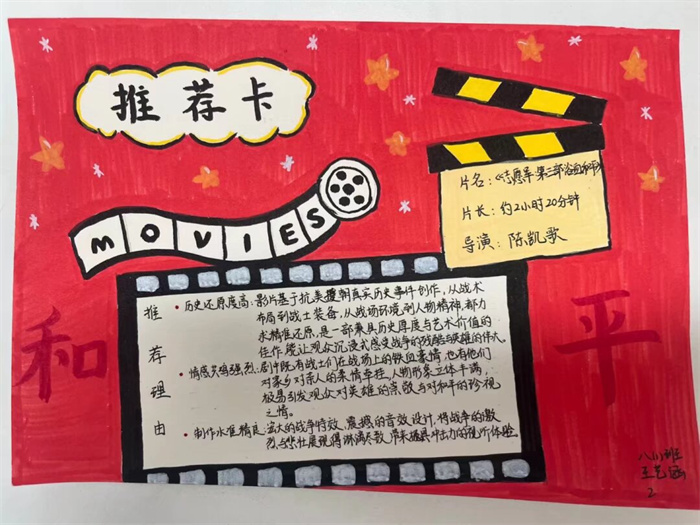 推荐卡
MOVIES
片名:《志愿军:第三部浴血和平》
片长:约2小时20分钟
导演:陈凯歌
和平
推荐理由
• 历史还原度高:影片基于抗美援朝真实历史事件创作,从战术
布局到战士装备,从战场环境到人物精神,都力
求精准还原,是一部兼具历史厚度与艺术价值的
佳作,能让观众沉浸式感受战争的残酷与英雄的伟大。
• 情感共鸣强烈:剧中既有战士们在战场上的铁血豪情,也有他们
对家乡对亲人的柔情牵挂,人物形象立体丰满,
极易引发观众对英雄的崇敬与对和平的珍视
之情。
• 制作水准精良:宏大的战争特效、震撼的音效设计,将战争的激
烈与悲壮展现得淋漓尽致,带来极具冲击力的视听体验。
八(1)班
王艺涵
2